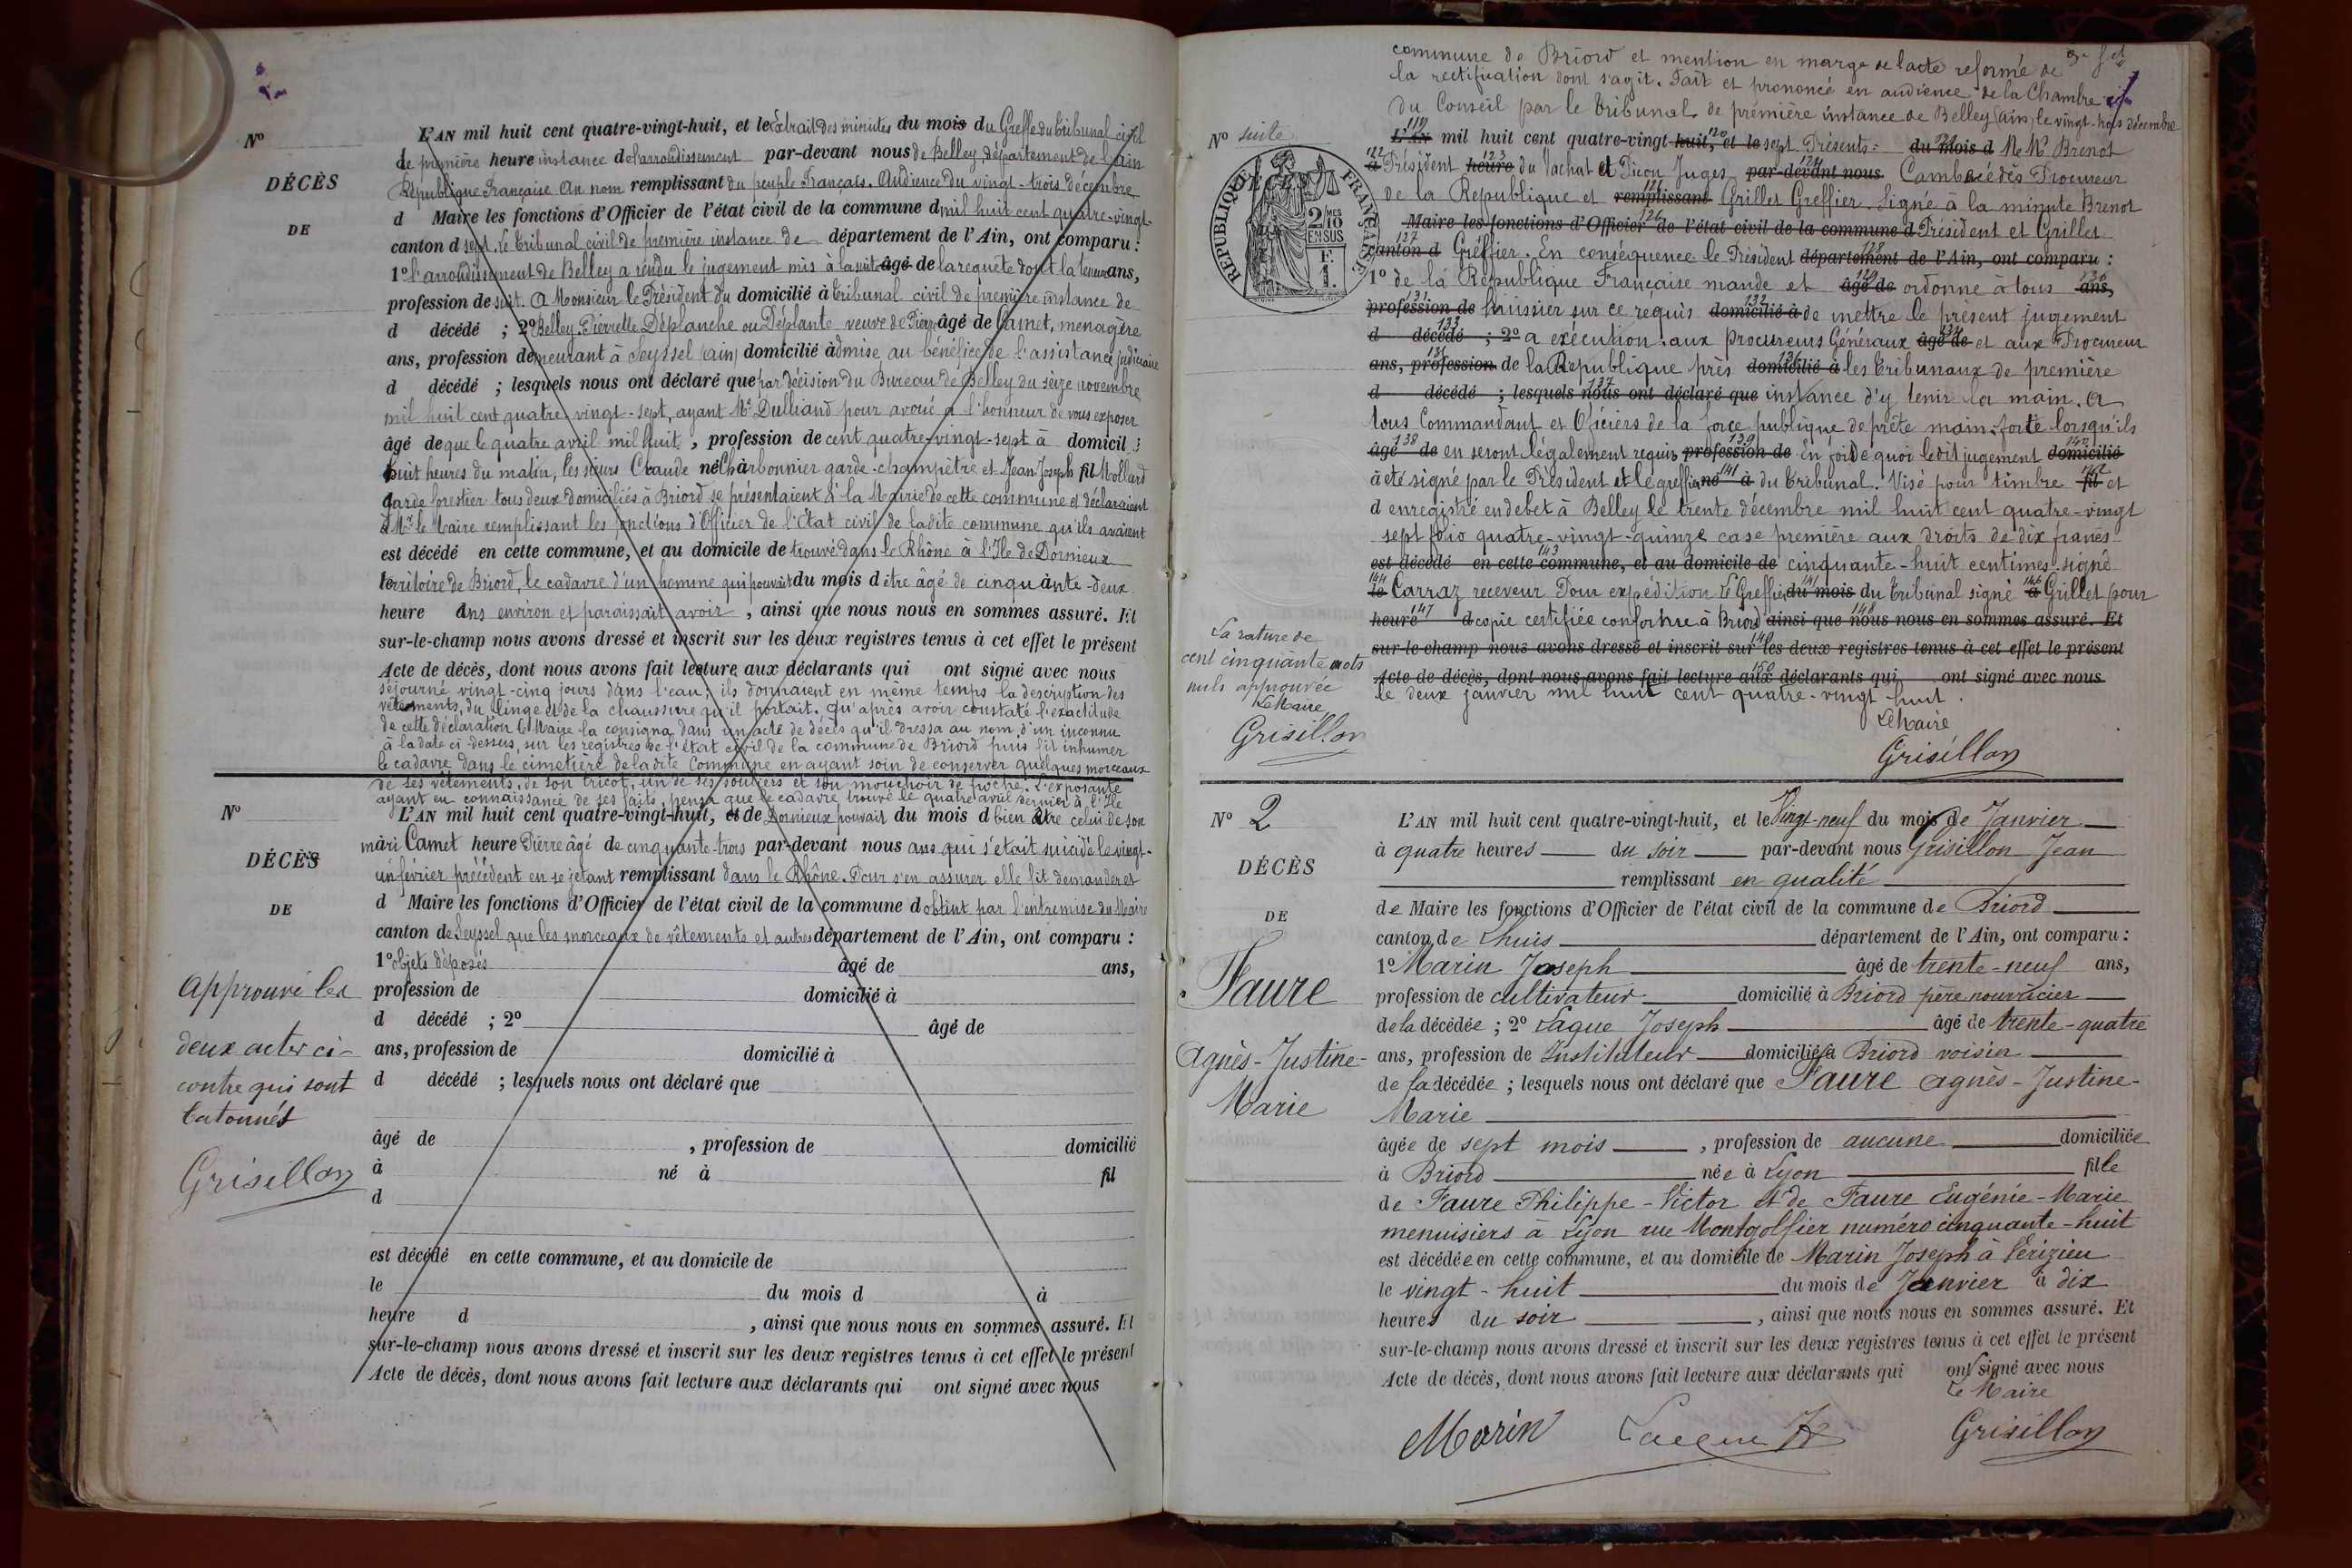 N°
DÉCÈS
DE
L'AN mil huit cent quatre-vingt-huit, et le Extrait des minutes du mois du Greffe du tribunal civil
de première heure instance de l'arrondissement par-devant nous de Belley département de l'ain
République Française au nom remplissant du peuple Français. Audience du vingt-trois décembre
d Maire les fonctions d'Officier de l'état civil de la commune d mil huit cent quatre-vingt-
canton d sept. Le tribunal civil de première instance de département de l'Ain, ont comparu :
1° l'arrondissement de Belley a rendu le jugement mis à la suite âgé de la requête dont la teneur ans,
profession de suit. A Monsieur le Président du domicilié à tribunal civil de première instance de
d décédé ; 2° Belley. Pierrette Déplanche ou Déplante veuve de Pierre âgé de Camet, menagère
ans, profession demeurant à Seyssel (ain) domicilié admise au bénéfice de l'assistance judiciaire
d décédé ; lesquels nous ont déclaré que par décision du Bureau de Belley du seize novembre
mil huit cent quatre-vingt-sept, ayant Me Dulliand pour avoué a l'honneur de vous exposer
âgé de que le quatre avril mil huit, profession de cent quatre-vingt-sept à domicilié
huit heures du matin, les sieurs Claude né Charbonnier garde-champêtre et Jean-Joseph fil Mollard
garde forestier tous deux domiciliés à Briord se présentaient à la Mairie de cette commune et déclaraient
à Mr le Maire remplissant les fonctions d'Officier de l'Etat civil de ladite commune qu'ils avaient
est décédé en cette commune, et au domicile de trouvé dans le Rhône à l'Ile de Dornieux
territoire de Briord, le cadavre d'un homme qui pouvait du mois d être âgé de cinquante-deux
heure d ans environ et paraissait avoir, ainsi que nous nous en sommes assuré. Et
sur-le-champ nous avons dressé et inscrit sur les deux registres tenus à cet effet le présent
Acte de décès, dont nous avons fait lecture aux déclarants qui ont signé avec nous
séjourné vingt-cinq jours dans l'eau ; ils donnaient en même temps la description des
vêtements, du linge et de la chaussure qu'il portait. qu'après avoir constaté l'exactitude
de cette déclaration le Maire la consigna dans un acte de décès qu'il dressa au nom d'un inconnu
à la date ci-dessus, sur les registres de l'état civil de la commune de Briord puis fit inhumer
le cadavre dans le cimetière de ladite Commune en ayant soin de conserver quelques morceaux
de ses vêtements, de son tricot, un de ses souliers et son mouchoir de poche. L'exposante
ayant eu connaissance de ses faits, pensa que le cadavre trouvé le quatre avril dernier à l'Ile
N°
DÉCÈS
DE
L'AN mil huit cent quatre-vingt-huit, et de Dornieux pouvait du mois d bien être celui de son
mari Camet heure Pierre âgé de cinquante-trois par-devant nous ans qui s'était suicidé le vingt-
un février précédent en se jetant remplissant dans le Rhône. Pour s'en assurer elle fit demander et
d Maire les fonctions d'Officier de l'état civil de la commune d obtint par l'entremise du Maire
canton de Seyssel que les morceaux de vêtements et autres département de l'Ain, ont comparu :
1° objets déposés âgé de ans,
profession de domicilié à
d décédé ; 2° âgé de
ans, profession de domicilié à
d décédé ; lesquels nous ont déclaré que
âgé de , profession de domicilié
à né à fil
d
est décédé en cette commune, et au domicile de
le du mois d à
heure d , ainsi que nous nous en sommes assuré. Et
sur-le-champ nous avons dressé et inscrit sur les deux registres tenus à cet effet le présent
Acte de décès, dont nous avons fait lecture aux déclarants qui ont signé avec nous
Approuvé les
deux actes ci-
contre qui sont
batonnés
Grisillon
commune de Briord et mention en marge de l'acte reformé de
la rectification dont s'agit. Fait et prononcé en audience de la Chambre
du Conseil par le tribunal de première instance de Belley (ain) le vingt-trois décembre
N° suite
REPUBLIQUE FRANÇAISE
2 MES 10 EN SUS
F. 1.
119 L'AN mil huit cent quatre-vingt-huit, 120 et le sept Présents : 121 du mois d M M. Brenot
122 à Président 123 heure du Vachat et Picon Juges 124 par-devant nous Cambacédès Procureur
de la République et remplissant Grillet Greffier. Signé à la minute Brenot
126 Maire les fonctions d'Officier de l'état civil de la commune d Président et Grillet
127 canton d Greffier. En conséquence le Président 128 département de l'Ain, ont comparu :
1° de la République Française mande et 129 âgé de ordonne à tous 130 ans,
131 profession de huissier sur ce requis 132 domicilié à de mettre le présent jugement
133 d décédé ; 2° a exécution. aux Procureurs Généraux 134 âgé de et aux Procureur
135 ans, profession de la République près 136 domicilié à les tribunaux de première
137 d décédé ; lesquels nous ont déclaré que instance d'y tenir la main. A
tous Commandant et Oficiers de la force publique de prête main-forte lorsqu'ils
138 âgé de en seront légalement requis 139 profession de En foi de quoi ledit jugement 140 domicilié
à été signé par le Président et le greffier 141 né à du tribunal. Visé pour timbre 142 fil et
d enregistré en debet à Belley le trente décembre mil huit cent quatre-vingt
sept folio quatre-vingt-quinze case première aux droits de dix francs
143 est décédé en cette commune, et au domicile de cinquante-huit centimes. signé
144 le Carraz receveur Pour expédition Le Greffier 145 du mois du tribunal signé 146 à Grillet pour
147 heure d copie certifiée conforme à Briord 148 ainsi que nous nous en sommes assuré. Et
149 sur-le-champ nous avons dressé et inscrit sur les deux registres tenus à cet effet le présent
150 Acte de décès, dont nous avons fait lecture aux déclarants qui ont signé avec nous
le deux janvier mil huit cent quatre-vingt-huit.
Le Maire
Grisillon
La rature de
cent cinquante mots
nuls approuvée
Le Maire
Grisillon
N° 2
DÉCÈS
DE
Faure
Agnès-Justine-
Marie
L'AN mil huit cent quatre-vingt-huit, et le Vingt-neuf du mois de Janvier
à quatre heures du soir par-devant nous Grisillon Jean
remplissant en qualité
de Maire les fonctions d'Officier de l'état civil de la commune de Briord
canton de Lhuis département de l'Ain, ont comparu :
1° Marin Joseph âgé de trente-neuf ans,
profession de cultivateur domicilié à Briord père nourricier
de la décédée ; 2° Laque Joseph âgé de trente-quatre
ans, profession de Instituteur domicilié à Briord voisin
de la décédée ; lesquels nous ont déclaré que Faure Agnès-Justine-
Marie
âgée de sept mois , profession de aucune domiciliée
à Briord née à Lyon fille
de Faure Philippe-Victor et de Faure Eugénie-Marie
menuisiers à Lyon rue Montgolfier numéro cinquante-huit
est décédée en cette commune, et au domicile de Marin Joseph à Vérizieu
le vingt-huit du mois de Janvier à dix
heures du soir , ainsi que nous nous en sommes assuré. Et
sur-le-champ nous avons dressé et inscrit sur les deux registres tenus à cet effet le présent
Acte de décès, dont nous avons fait lecture aux déclarants qui ont signé avec nous
Le Maire
Marin Laque Grisillon